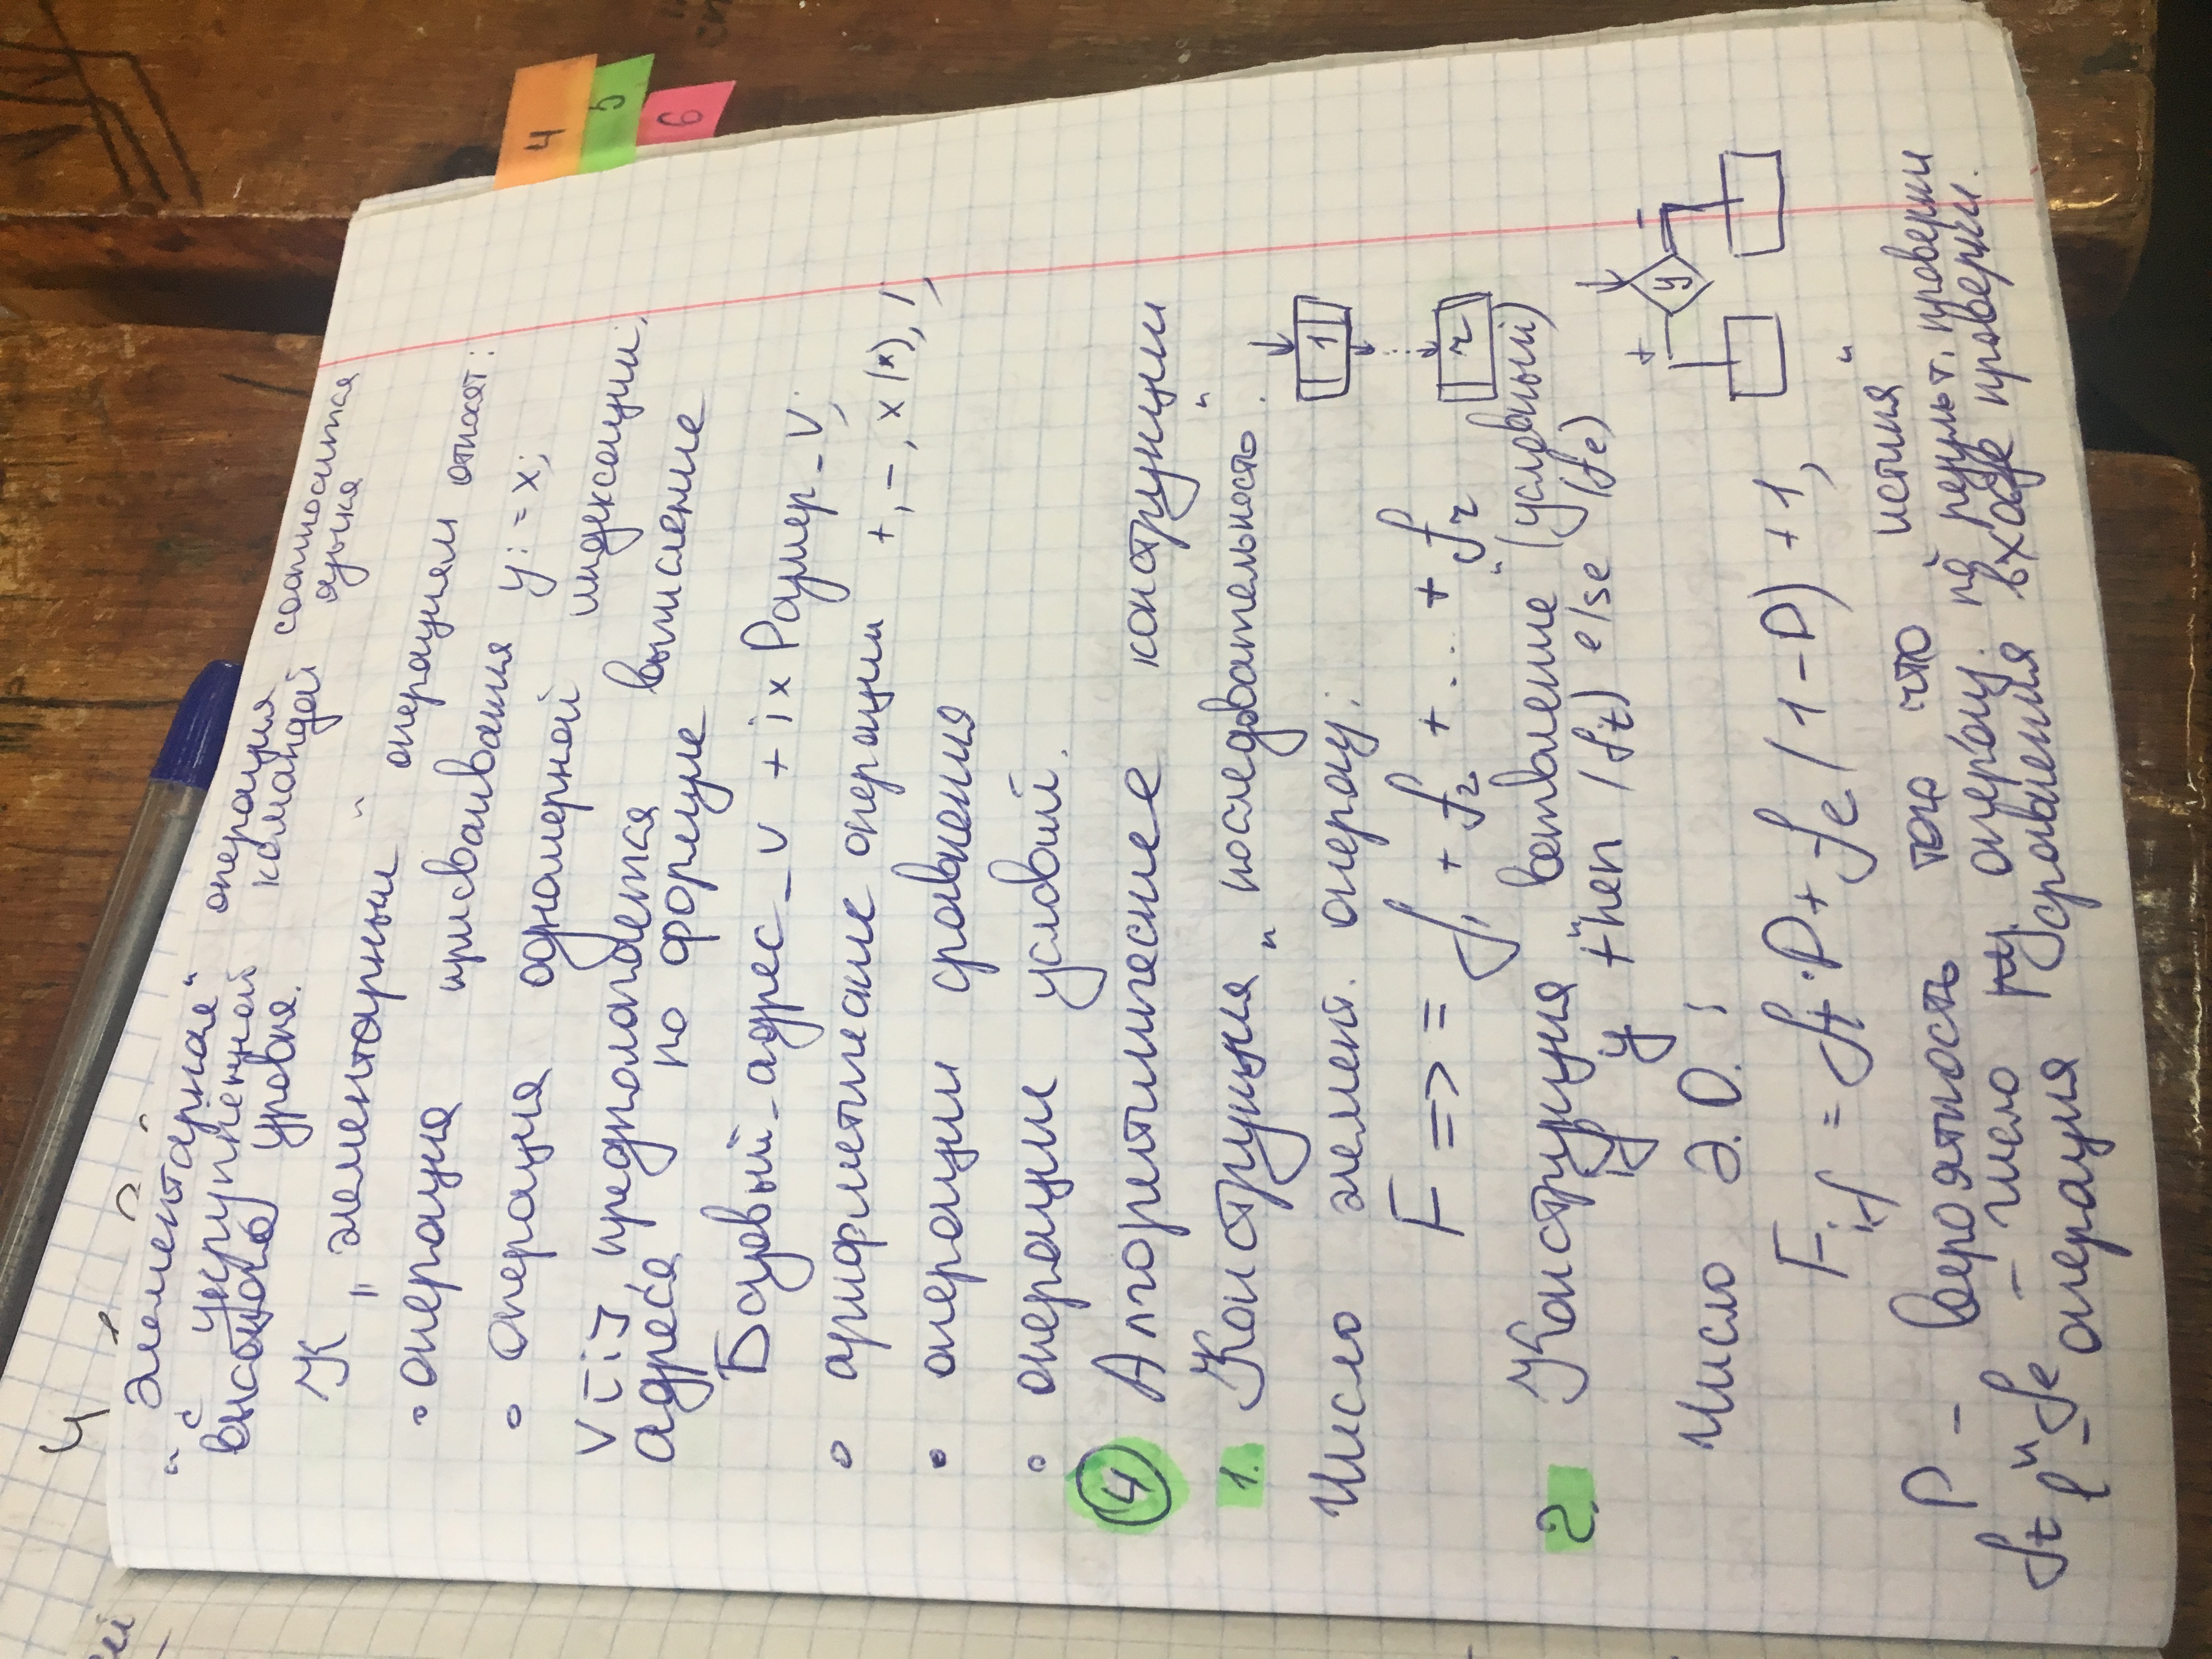 4
"элементарная" операция соотносится
с укрупненной командой языка
высокого уровня.
К "элементарным" операциям относят:
• операция присваивания y:=x;
• операция одномерной индексации;
v[i], предполагается вычисление
адреса по формуле
Базовый_адрес_v + i x Размер_v;
• арифметические операции +, -, x (*), /,
• операции сравнения
• операции условий.
4 Алгоритмические конструкции
1. Конструкция "последовательность".
Число элемент. операц:
1
F => = f1 + f2 + ... + fr
r
2. Конструкция "ветвление" (условный)
if y then (ft) else (fe)
+ y -
Число Э.О.:
Fif = ft·P + fe (1-P) + 1,
P - вероятность того, что "истина"
по результ. проверки
ft и fe - число операц.
операция сравнения входе проверки.
4
5
6